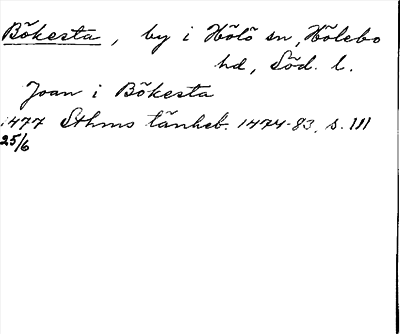 Bökesta, by i Hölö sn, Hölebo
hd, Söd. l.
Joan i Bökesta
1477 Sthms tänkeb. 1474-83, s. 111
25/6